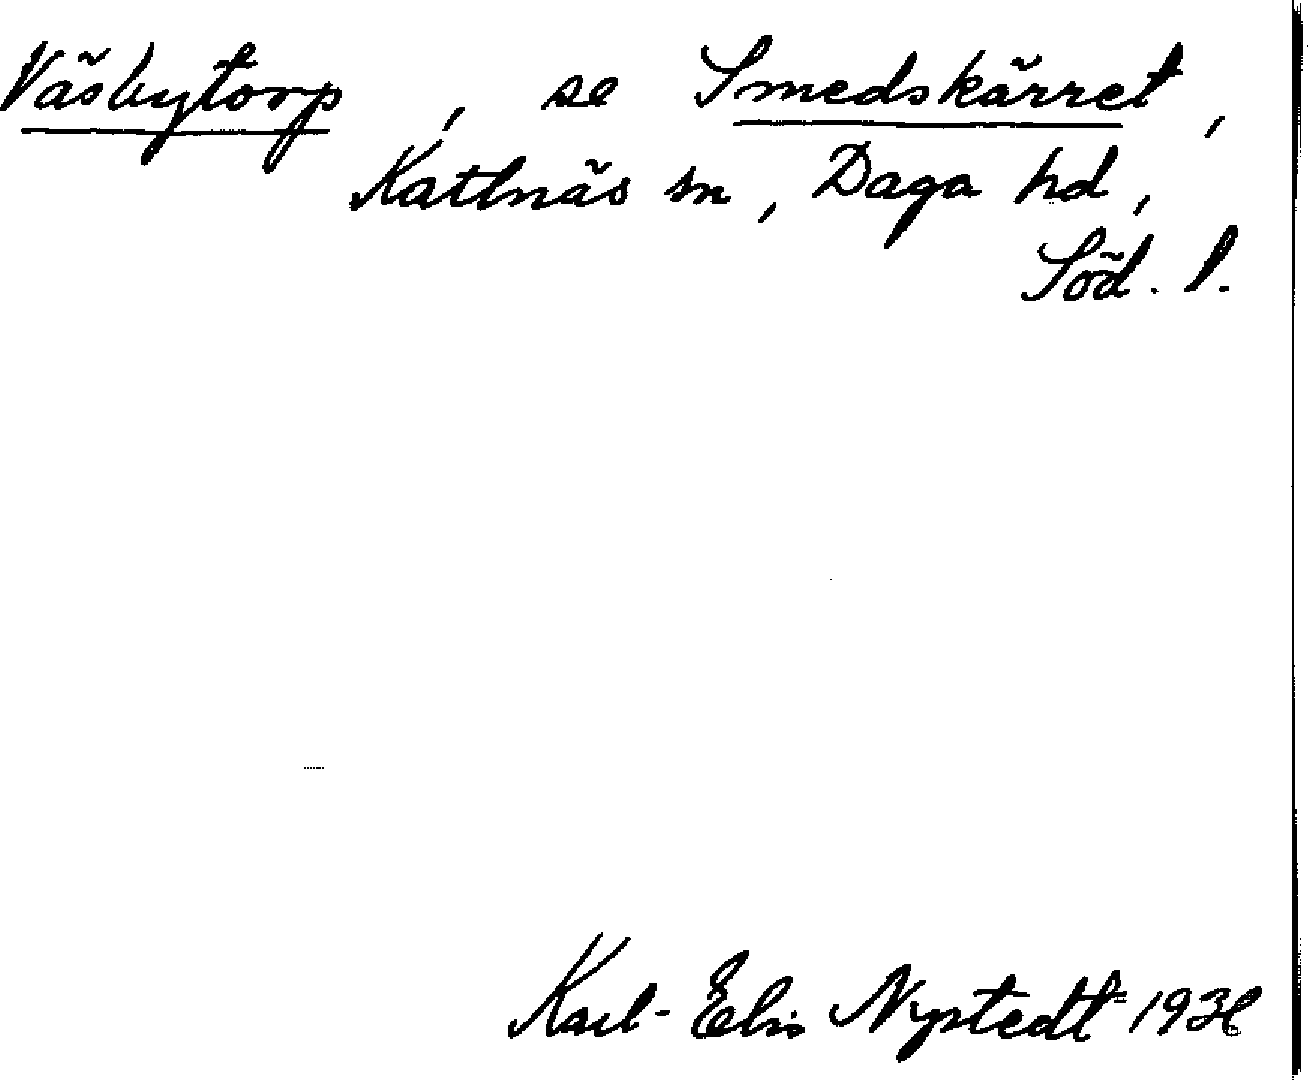 Väsbytorp, se Smedskärret,
Kattnäs sn, Daga hd,
Söd. l.
Karl-Elis Nystedt